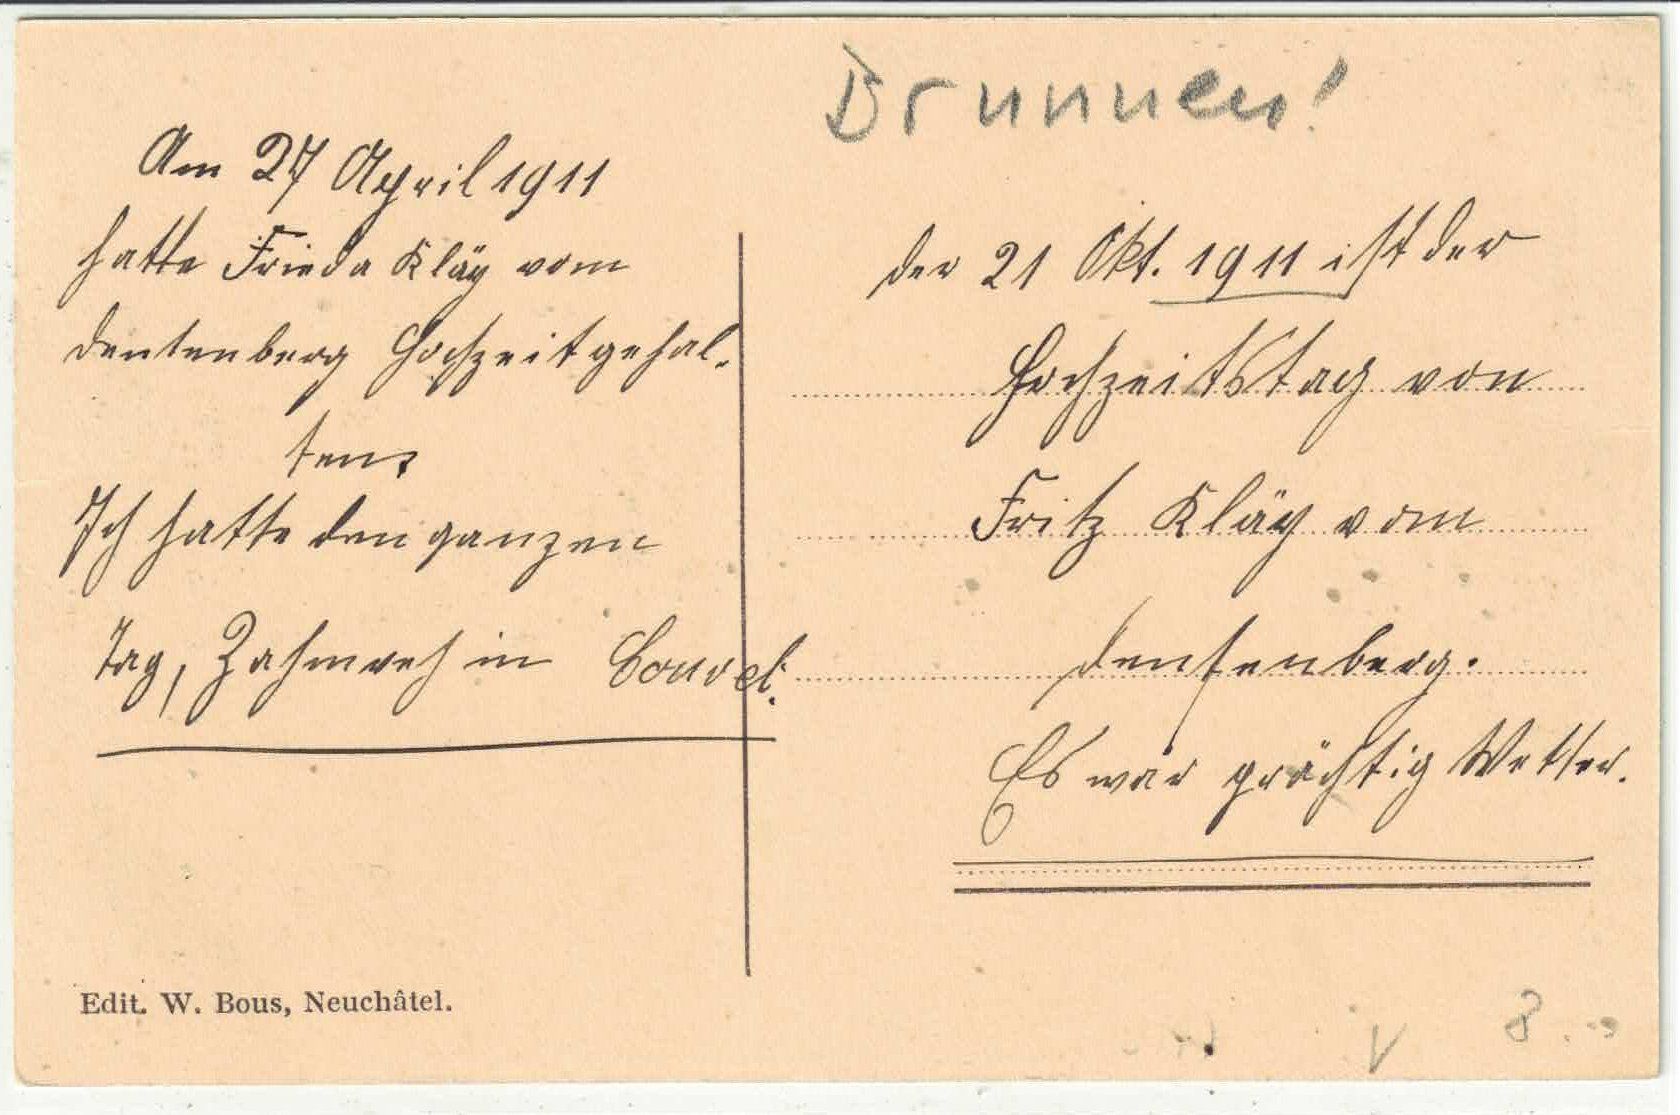 Brunnen!
Am 27 April 1911
hatte Frieda Kläy vom
Dentenberg Hochzeit gehal-
ten,
Ich hatte den ganzen
Tag, Zahnweh in Couvet.
der 21 Okt. 1911 ist der
Hochzeitstag von
Fritz Kläy vom
Dentenberg.
Es war prächtig Wetter.
Edit. W. Bous, Neuchâtel.